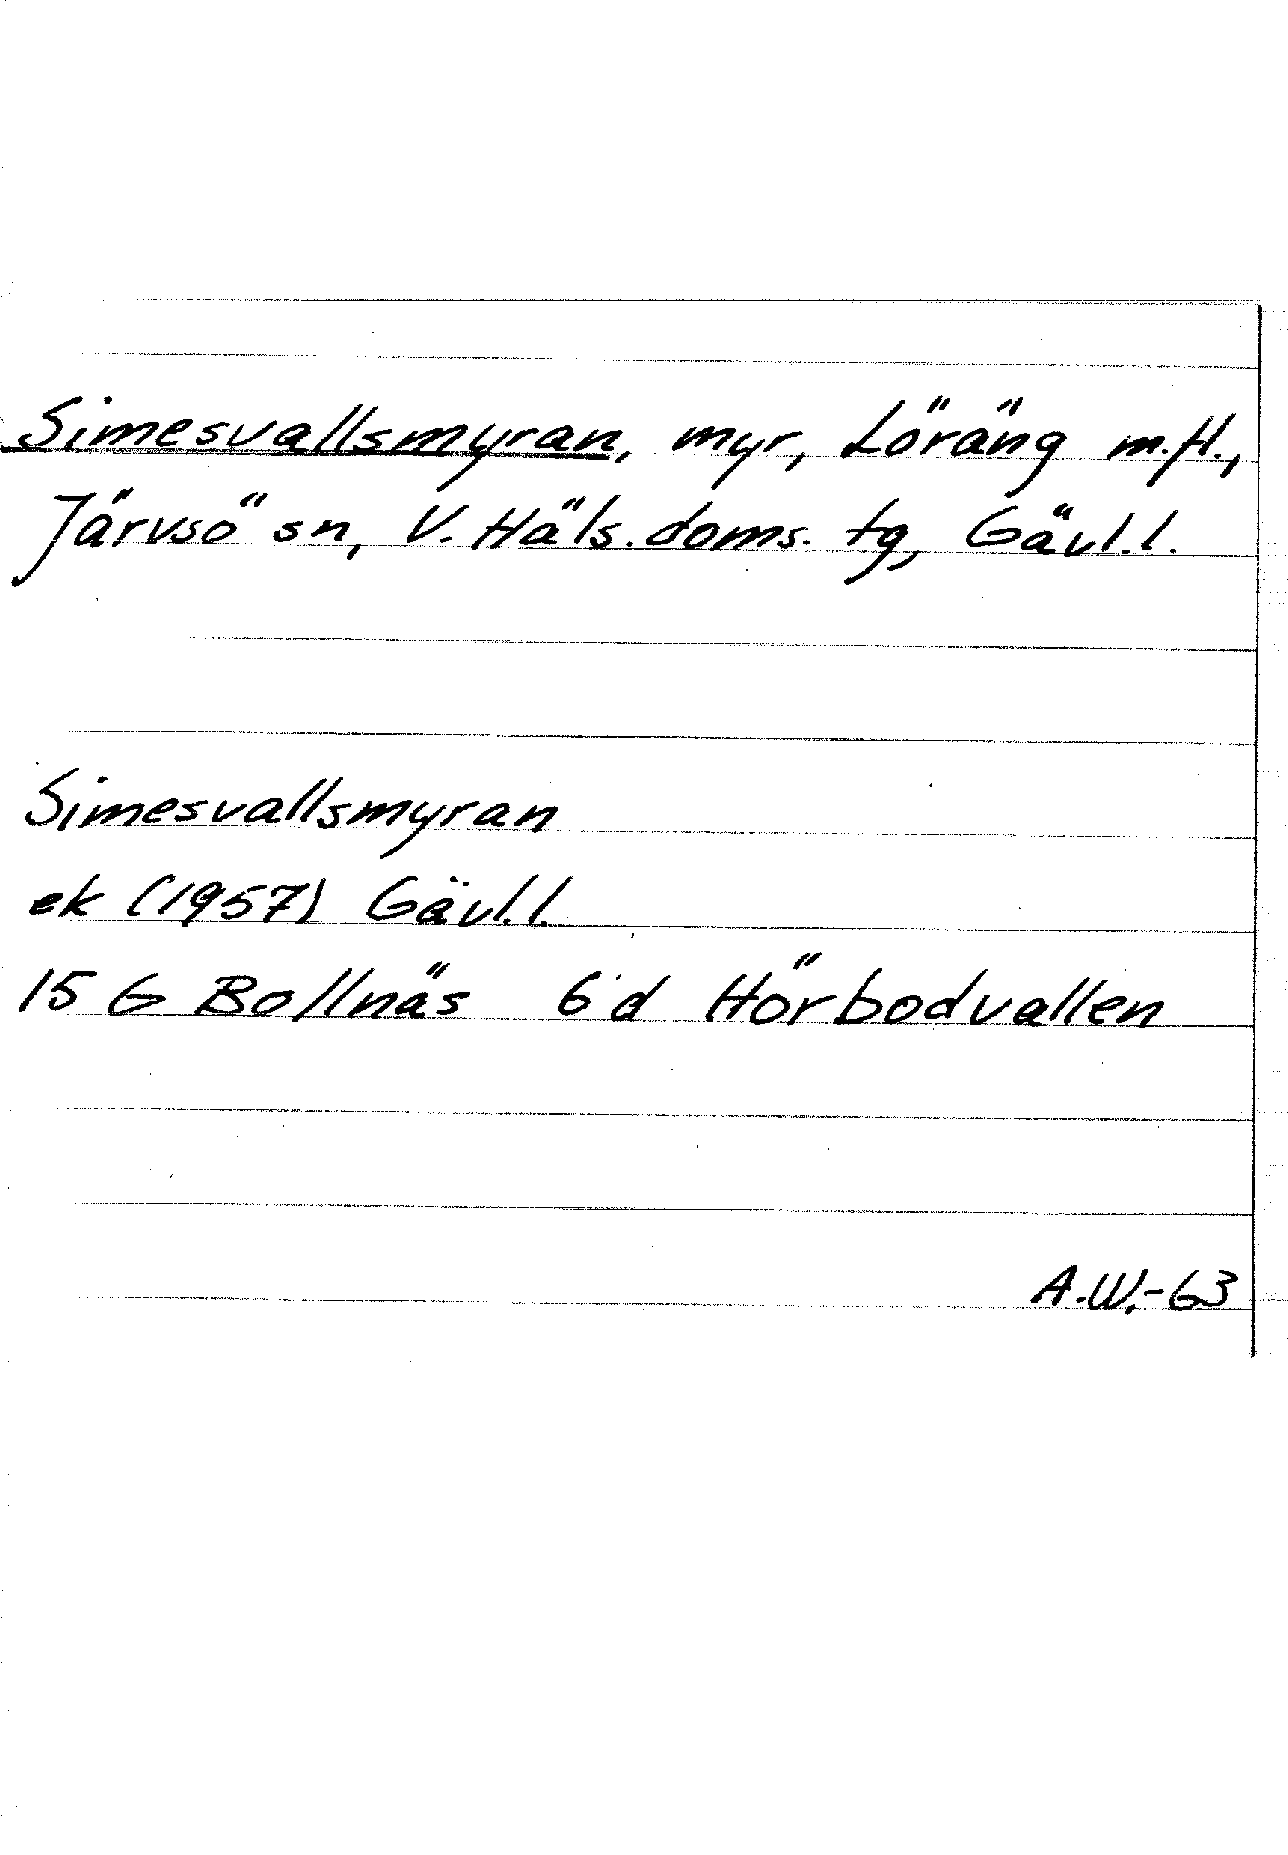 Simesvallsmyran, myr, Löräng m.fl.,
Järvsö sn, V. Häls. doms. tg, Gävl.l.
Simesvallsmyran
ek (1957) Gävl.l.
15 G Bollnäs 6 d Hörbodvallen
A.W.-63